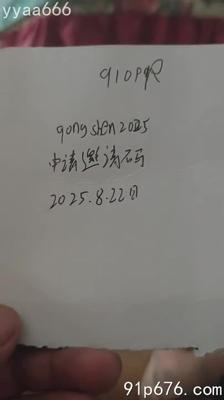 yyaa666
910PR
gongshen2025
申请邀请码
2025.8.22日
91p676.com